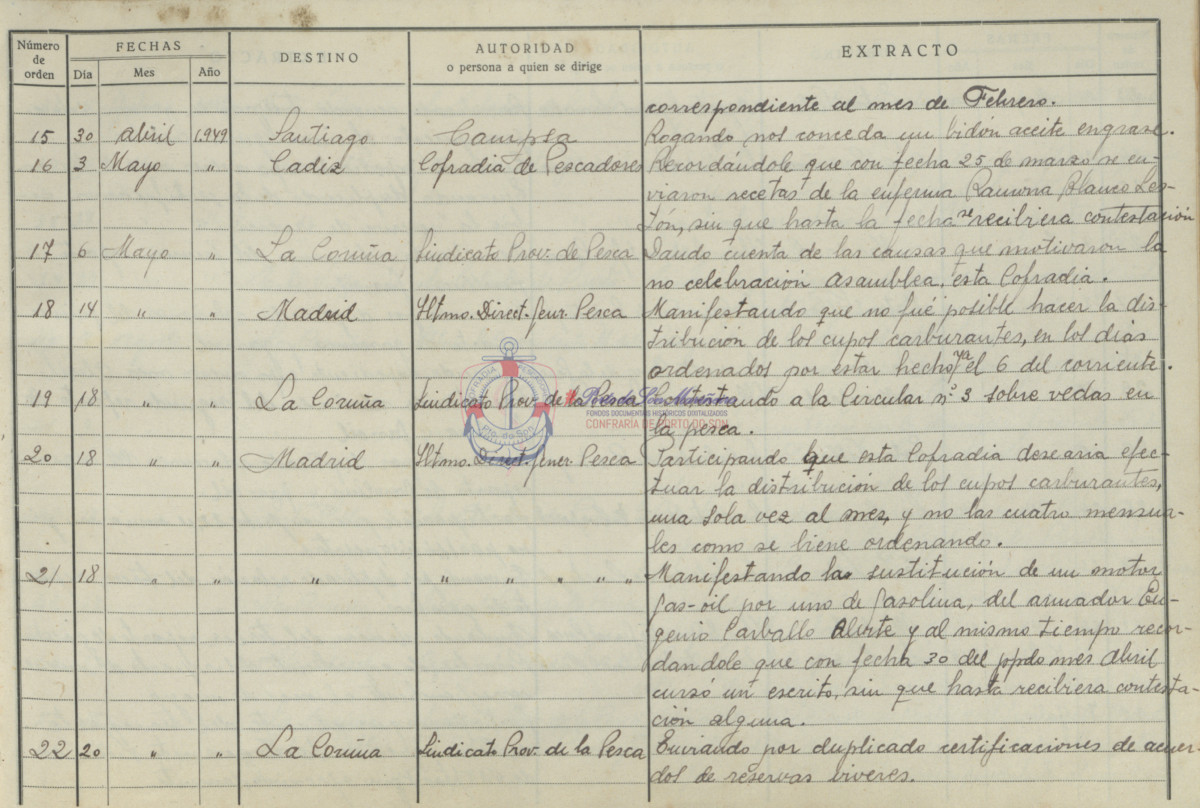 Número de orden FECHAS DESTINO AUTORIDAD o persona a quien se dirige EXTRACTO
Día Mes Año
correspondiente al mes de Febrero.
15 30 Abril 1.949 Santiago Campsa Rogando nos conceda un bidón aceite engrase.
16 3 Mayo " Cadiz Cofradia de Pescadores Recordándole que con fecha 25 de marzo se en-
viaron recetas de la enferma Ramona Blanco Les-
tón, sin que hasta la fecha se recibiera contestación
17 6 Mayo " La Coruña Sindicato Prov. de Pesca Dando cuenta de las causas que motivaron la
no celebración Asamblea, esta Cofradia.
18 14 " " Madrid Iltmo. Direct. Genr. Pesca Manifestando que no fué posible hacer la dis-
tribución de los cupos carburantes, en los dias
ordenados por estar hecho ya el 6 del corriente.
19 18 " " La Coruña Sindicato Prov. de la Pesca Contestando a la Circular nº 3 sobre vedas en
FONDOS DOCUMENTAIS HISTÓRICOS DIXITALIZADOS
CONFRARÍA DE PORTO DO SON
Pto. do Son
la pesca.
20 18 " " Madrid Iltmo. Direct. Gener. Pesca Participando que esta Cofradia desearia efec-
tuar la distribución de los cupos carburantes,
una sola vez al mes, y no las cuatro mensua-
les como se biene ordenando.
21 18 " " " " " " " " Manifestando la sustitución de un motor
Gas-oil por uno de Gasolina, del armador Eu-
genio Carballo Alvite y al mismo tiempo recor-
dandole que con fecha 30 del ppdo mes Abril
cursó un escrito, sin que hasta recibiera contesta-
ción alguna.
22 20 " " La Coruña Sindicato Prov. de la Pesca Enviando por duplicado certificaciones de acuer-
dos de reservas viveres.